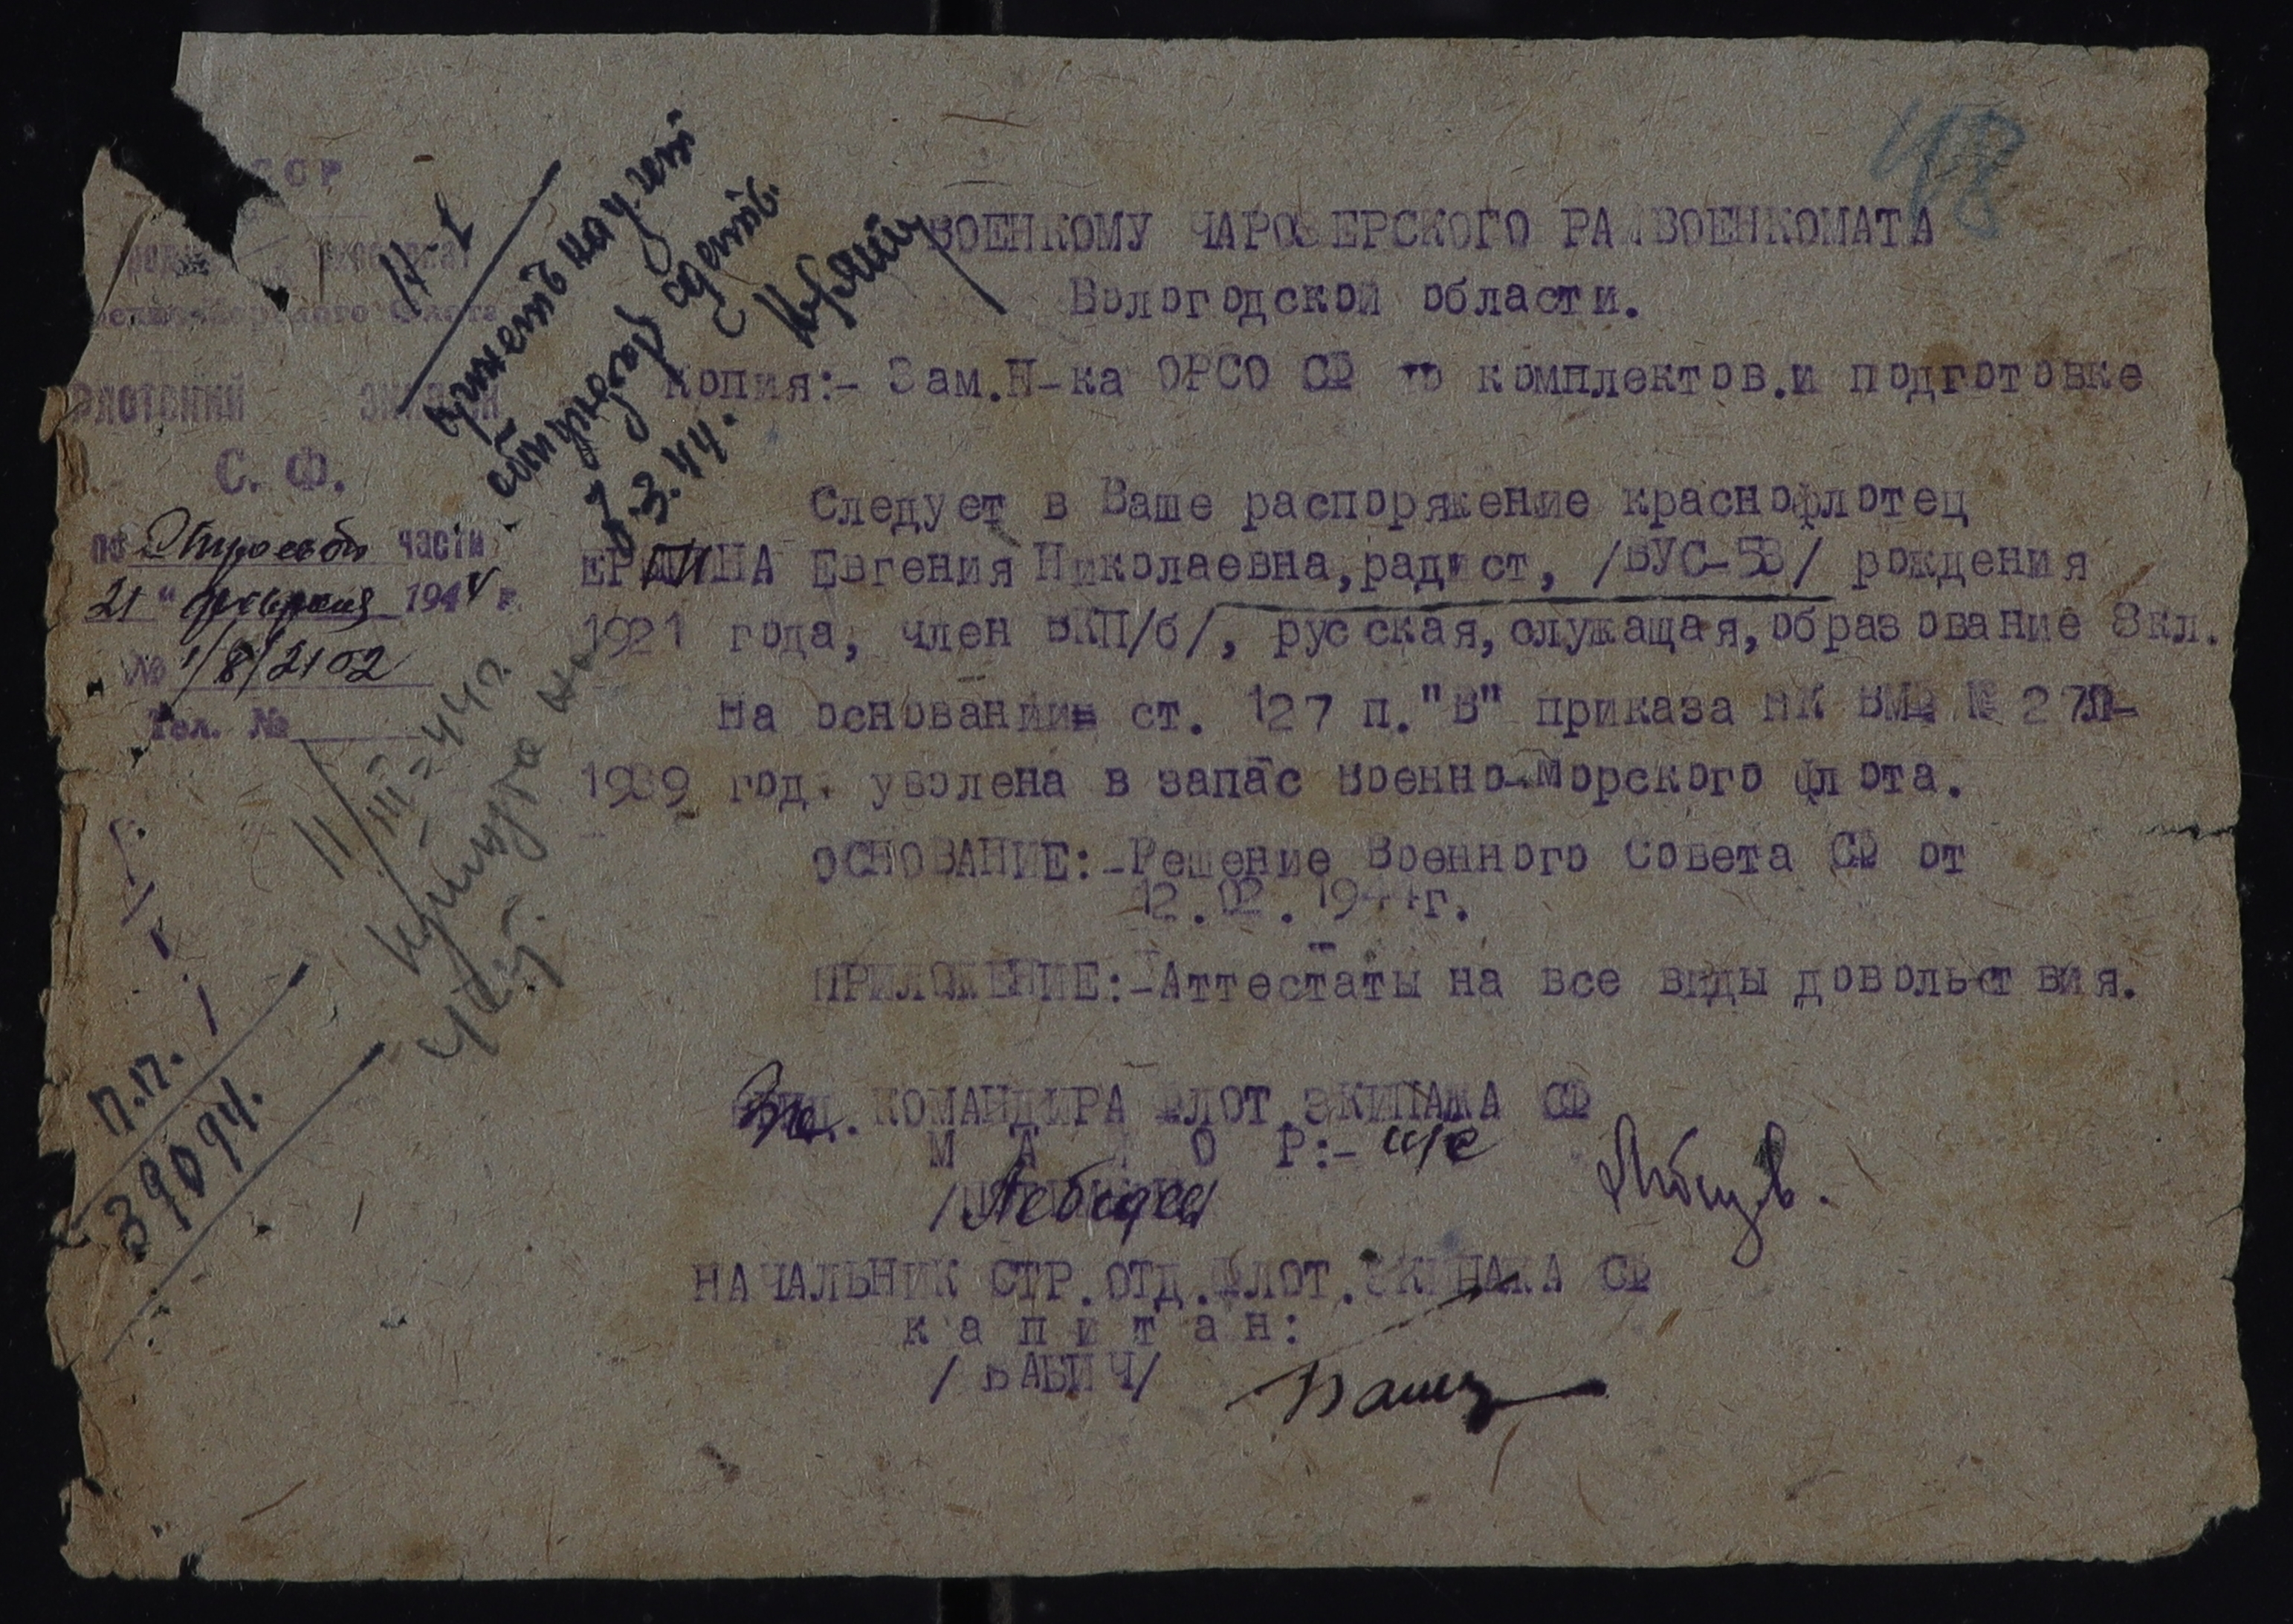 48
ССР
Флота
ФЛОТСКИЙ ЭКИПАЖ
С. Ф.
по Строевой части
21 " февраля 1944 г.
№ 1/8/2102
Тел. №
Н-1
7.3.44.
11/III-44 г.
п.п.
39094.
ВОЕНКОМУ ЧАРОЗЕРСКОГО РАЙВОЕНКОМАТА
Вологодской области.
Копия:- Зам.Н-ка ОРСО СФ по комплектов.и подготовке
Следует в Ваше распоряжение краснофлотец
ЕРШИНА Евгения Николаевна,радист, /ВУС-53/ рождения
1921 года, член ВКП/б/, русская,служащая,образование 8кл.
На основании ст. 127 п."В" приказа НК ВМФ №
1939 год. уволена в запас Военно-Морского флота.
ОСНОВАНИЕ:-Решение Военного Совета СФ от
12.02.1944г.
ПРИЛОЖЕНИЕ:-Аттестаты на все виды довольствия.
КОМАНДИРА ФЛОТ.ЭКИПАЖА СФ
М А Й О Р:-
/Лебедев/
НАЧАЛЬНИК СТР.ОТД.ФЛОТ.ЭКИПАЖА СФ
к а п и т а н:
/БАБИЧ/